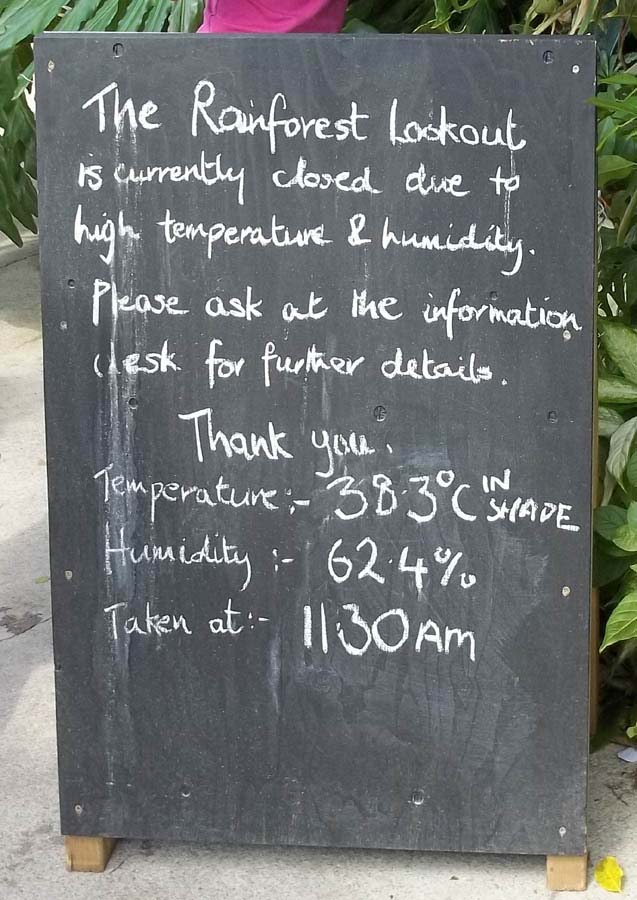 The Rainforest Lookout
is currently closed due to
high temperature & humidity.
Please ask at the information
desk for further details.
Thank you.
Temperature:- 38.3°C IN SHADE
Humidity :- 62.4%
Taken at:- 11:30AM